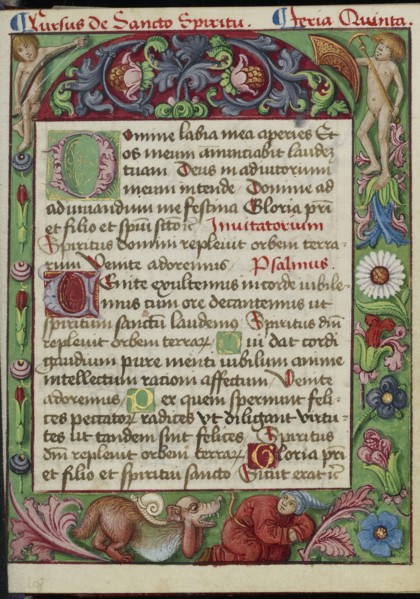 Cursus de Sancto Spiritu. Feria Quinta.
Domine labia mea aperies Et
os meum annūtiabit laudeʒ
tuam Deus in adiutorium
meum intende Domine ad
adiuuandum me festina Gloria pr̄i
et filio et spūi sc̄to Inuitatorium
Spiritus domini repleuit orbem terra-
rum Venite adoremus Psalmus.
Uenite exultemus in corde iubile-
mus cum ore decantemus ut
spiritum sanctū laudemꝰ Spiritus dn̄i
repleuit orbem terraꝝ Qui dat cordi
gaudium pure menti iubilum anime
intellectum rationi affectum Venite
adoremus Per quem spernunt feli-
ces peccatoꝝ radices vt diligant virtu-
tes ut tandem sint felices Spiritus
dn̄i repleuit orbem terraꝝ Gloria pri
et filio et spiritui sancto Sicut erat